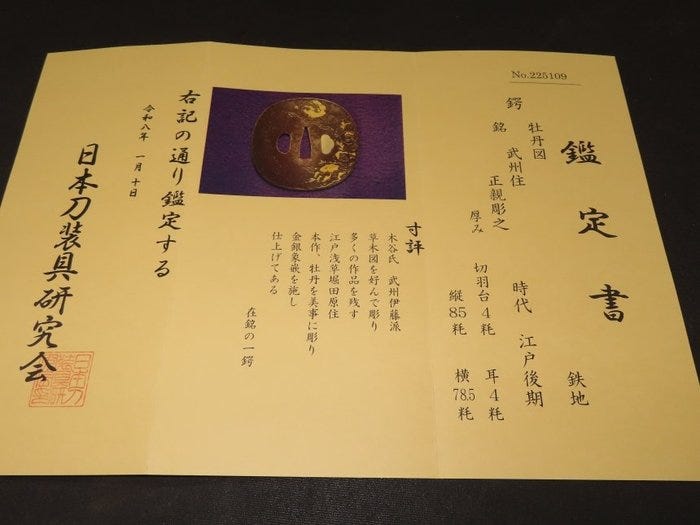 No.225109
鑑定書
鉄地
鍔
牡丹図
時代 江戸後期
銘 武州住
正親彫之
厚み
切羽台4粍
耳4粍
縦85粍
横78.5粍
寸評
木谷氏 武州伊藤派
草木図を好んで彫り
多くの作品を残す
江戸浅草堀田原住
本作、牡丹を美事に彫り
金銀象嵌を施し
仕上げてある
在銘の一鍔
右記の通り鑑定する
令和八年 一月十日
日本刀装具研究会